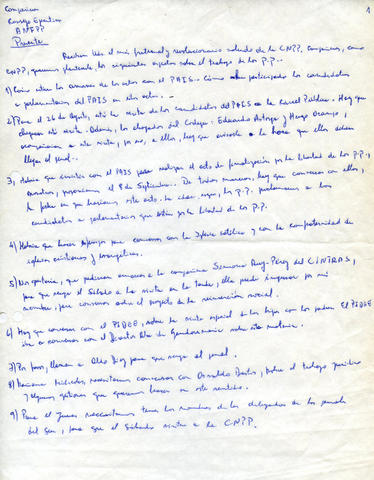 Compañeros
Consejo Ejecutivo
ANFPP
Presente
1
Reciban Uds el más fraternal y revolucionario saludo de la CNPP. Compañeros, como
CNPP, queremos plantearle los siguientes aspectos sobre el trabajo de los P.P..
1) Cómo están los comienzos de los actos con el PAIS. Cómo participando los candidatos
a parlamentarios del PAIS en estos actos.-
2) Para el 26 de Agosto, está la visita de los candidatos del PAIS a la Cárcel Pública. Hay que
chequear esta visita. Además, los abogados del Codepu: Eduardo Astorga y Hugo Ocampo,
a esta visita, por eso, a ellos, hay que avisarle la hora que ellos deben
llegar al penal.-
3) Habría que con el PAIS para realizar el acto de por la libertad de los P.P.,
nosotros, proponemos el 9 de Septiembre. De todas maneras, hay que conversar con ellos,
la fecha en que haríamos este acto. La idea, es que, los P.P. proclamemos a los
candidatos a parlamentarios que están por la libertad de los P.P.
4) Habría que hacer para conversar con la Iglesia Católica y con la confraternidad de
iglesias cristianas y evangélicas.
5) Es importante, que pudieran avisarle a la compañera Ruiz-Pérez del CINTRAS,
para que venga el Sábado a la visita en la tarde, ella puede ingresar por mi
nombre, para conversar sobre el proyecto de la reinserción social.
6) Hay que conversar con el PIDEE, sobre la visita especial de los hijos con los padres. El PIDEE
iba a conversar con el Director de Gendarmería sobre esta materia.
7) Por favor, llamen a Aldo Díaz para que venga al penal.
8) Nosotros necesitamos conversar con Osvaldo, sobre el trabajo jurídico
y algunas gestiones que queremos hacer en este sentido.
9) Para el Jueves necesitamos tener los nombres de los delegados de los penales
del sur, para que el Sábado visiten a la CNPP.